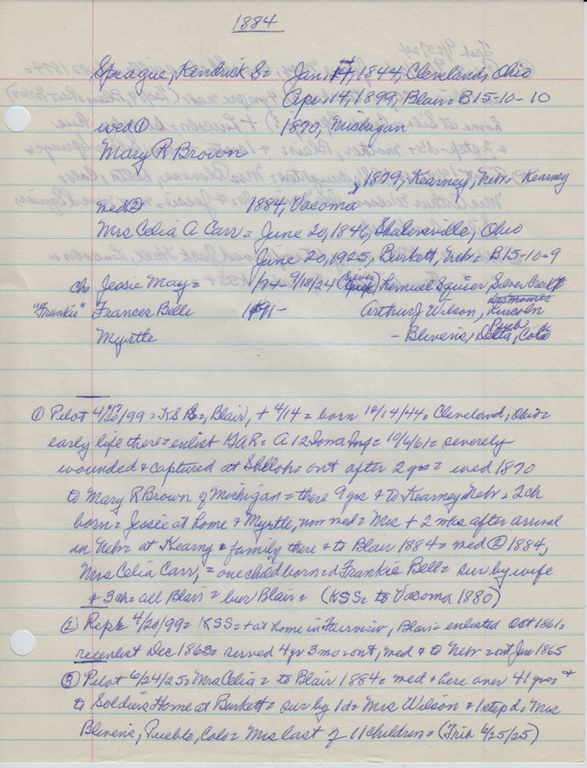 1884
Sprague, Kendrick S= Jan 14, 1844, Cleveland, Ohio
Apr. 14, 1899, Blair= B15-10-10
wed ① 1870, Michigan
Mary R Brown
, 1879, Kearney, Nebr= Kearney
wed ② 1884, Vacoma
Mrs Celia A Carr= June 20, 1846, Shalersville, Ohio
June 20, 1925, Burkett, Nebr= B15-10-9
ch Jessie May= Lemuel Squier, Silver Creek
"Frankie" Frances Belle Arthur J Wilson, Des Moines Lincoln
Myrtle - Blivens, Delta, Colo
① Pilot 4/20/99= KS S=, Blair, + 4/14= born 10/14/44= Cleveland, Ohio=
early life there= enlist GAR= A 12 Iowa Inf= 10/6/61= severely
wounded & captured at Shiloh= out after 2 yrs= wed 1870
to Mary R Brown of Michigan= there 9 yrs & to Kearney Nebr= 2ch
born= Jessie at home & Myrtle, now wed= Mrs + 2 mos after arrival
in Nebr at Kearny= family there & to Blair 1884= wed ② 1884,
Mrs Celia Carr,= one child born= d Frankie Bell= sur by wife
& 3 ch= all Blair= bur Blair= (KSS= to Vacoma 1880)
② Repb 4/20/99= KSS= + at home in Fairview, Blair= enlisted Oct 1861=
reenlist Dec 1863= served 4 yr 3 mo= out, wed & to Nebr= out Jan 1865
③ Pilot 6/24/25= Mrs Celia= to Blair 1884= wed= here over 41 yrs &
to Soldiers Home at Burkett= sur by 1 d= Mrs Wilson & 1 step d= Mrs
Blivens, Pueblo, Colo= Mrs last of 11 children= (Trib 6/25/25)